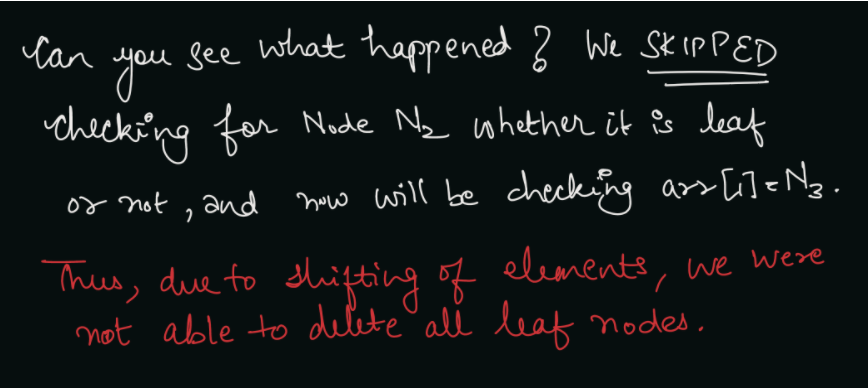 Can you see what happened? We SKIPPED
checking for Node N₂ whether it is leaf
or not, and now will be checking arr[1]=N₃.
Thus, due to shifting of elements, we were
not able to delete all leaf nodes.